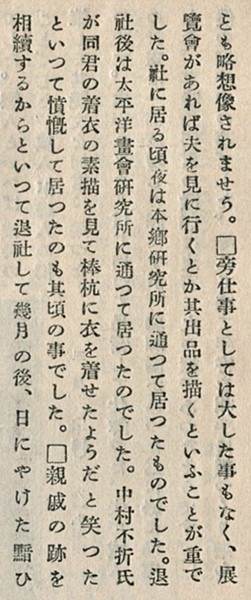 とも略想像されませう。□旁仕事としては大した事もなく、展
覽會があれば夫を見に行くとか其出品を描くといふことが重で
した。社に居る頃夜は本鄕硏究所に通つて居つたものでした。退
社後は太平洋畫會硏究所に通つて居つたのでした。中村不折氏
が同君の着衣の素描を見て棒杭に衣を着せたようだと笑つた
といつて憤慨して居つたのも其頃の事でした。□親戚の跡を
相續するからといつて退社して幾月の後、日にやけた黯ひ